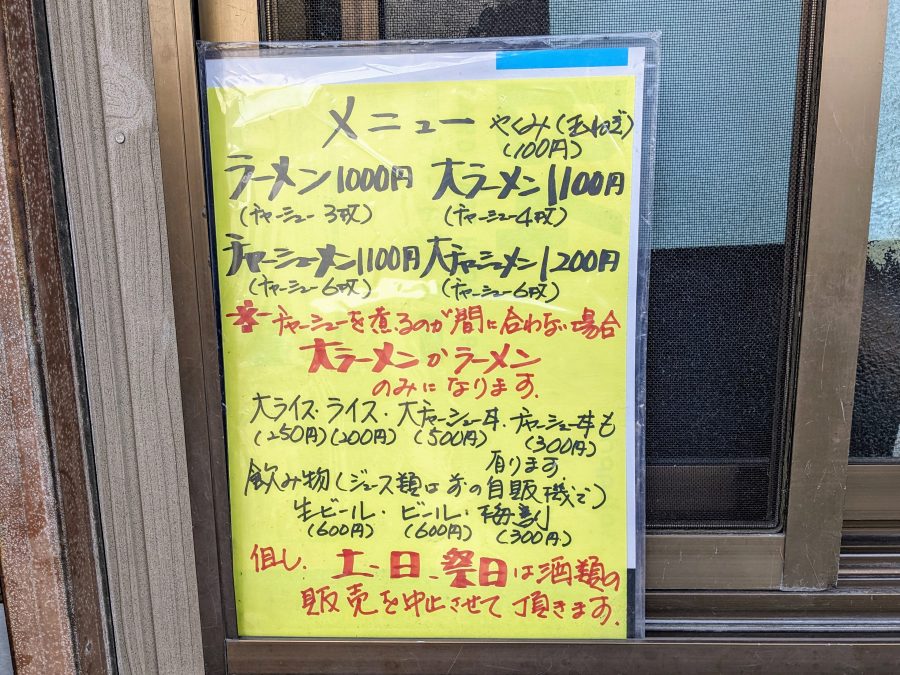 メニュー やくみ(玉ねぎ)
(100円)
ラーメン1000円 大ラーメン1100円
(チャーシュー3枚) (チャーシュー4枚)
チャーシューメン1100円 大チャーシューメン1200円
(チャーシュー6枚) (チャーシュー6枚)
※チャーシューを煮るのが間に合わない場合
大ラーメンかラーメン
のみになります。
大ライス・ライス・大チャーシュー丼・チャーシュー丼も
(250円)(200円) (500円) (300円)
有ります
飲み物(ジュース類は前の自販機で)
生ビール・ビール・梅割
(600円) (600円) (300円)
但し、土、日、祭日は酒類の
販売を中止させて頂きます。